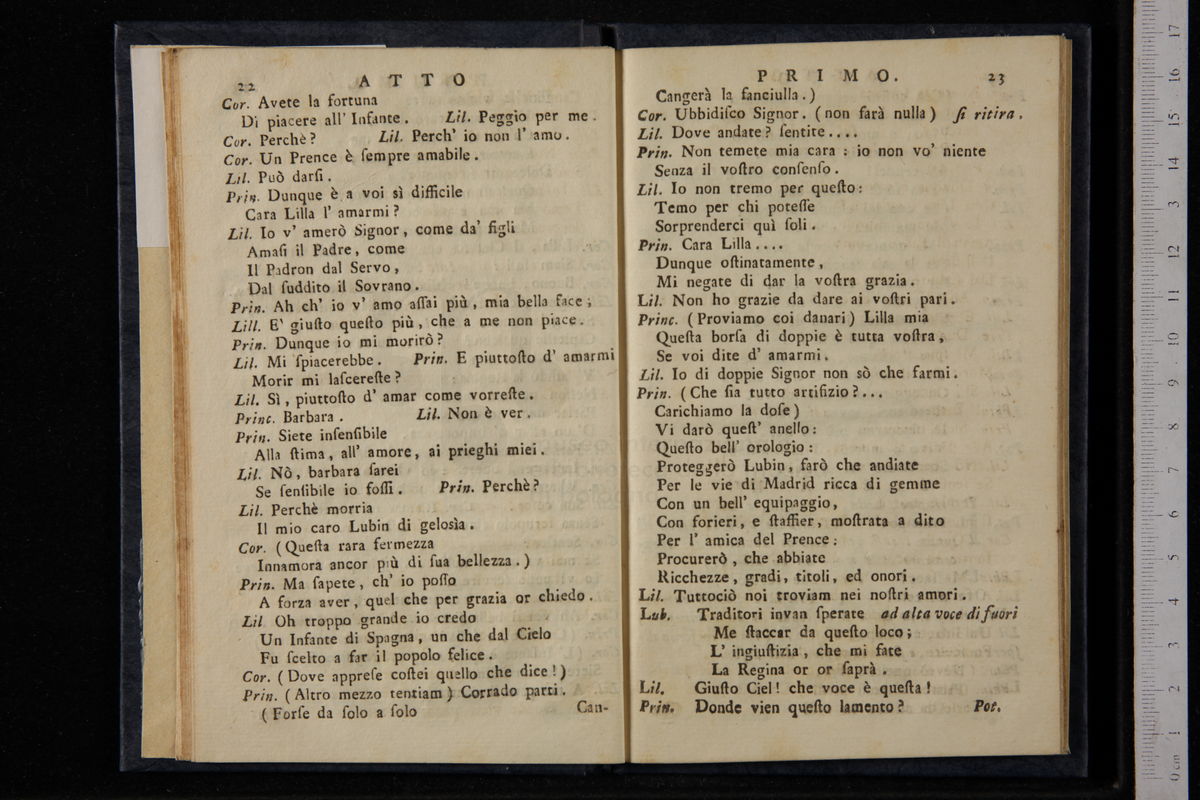 22 ATTO
Cor. Avete la fortuna
Di piacere all' Infante. Lil. Peggio per me.
Cor. Perchè? Lil. Perch' io non l' amo.
Cor. Un Prence è ſempre amabile.
Lil. Può darſi.
Prin. Dunque è a voi sì difficile
Cara Lilla l' amarmi?
Lil. Io v' amerò Signor, come da' figli
Amaſi il Padre, come
Il Padron dal Servo,
Dal ſuddito il Sovrano.
Prin. Ah ch' io v' amo aſſai più, mia bella face;
Lill. E' giuſto queſto più, che a me non piace.
Prin. Dunque io mi morirò?
Lil. Mi ſpiacerebbe. Prin. E piuttoſto d' amarmi
Morir mi laſcereſte?
Lil. Sì, piuttoſto d' amar come vorreſte.
Princ. Barbara. Lil. Non è ver.
Prin. Siete inſenſibile
Alla ſtima, all' amore, ai prieghi miei.
Lil. Nò, barbara ſarei
Se ſenſibile io foſſi. Prin. Perchè?
Lil. Perchè morria
Il mio caro Lubin di gelosìa.
Cor. (Queſta rara fermezza
Innamora ancor più di ſua bellezza.)
Prin. Ma ſapete, ch' io poſſo
A forza aver, quel che per grazia or chiedo.
Lil Oh troppo grande io credo
Un Infante di Spagna, un che dal Cielo
Fu ſcelto a far il popolo felice.
Cor. (Dove appreſe coſtei quello che dice!)
Prin. (Altro mezzo tentiam) Corrado parti.
(Forſe da ſolo a ſolo Can-
PRIMO. 23
Cangerà la fanciulla.)
Cor. Ubbidiſco Signor. (non farà nulla) ſi ritira.
Lil. Dove andate? ſentite....
Prin. Non temete mia cara: io non vo' niente
Senza il voſtro conſenſo.
Lil. Io non tremo per queſto:
Temo per chi poteſſe
Sorprenderci quì ſoli.
Prin. Cara Lilla....
Dunque oſtinatamente,
Mi negate di dar la voſtra grazia.
Lil. Non ho grazie da dare ai voſtri pari.
Princ. (Proviamo coi danari) Lilla mia
Queſta borſa di doppie è tutta voſtra,
Se voi dite d' amarmi.
Lil. Io di doppie Signor non sò che farmi.
Prin. (Che ſia tutto artifizio?...
Carichiamo la doſe)
Vi darò queſt' anello:
Queſto bell' orologio:
Proteggerò Lubin, farò che andiate
Per le vie di Madrid ricca di gemme
Con un bell' equipaggio,
Con forieri, e ſtaffier, moſtrata a dito
Per l' amica del Prence:
Procurerò, che abbiate
Ricchezze, gradi, titoli, ed onori.
Lil. Tuttociò noi troviam nei noſtri amori.
Lub. Traditori invan ſperate ad alta voce di fuori
Me ſtaccar da queſto loco;
L' ingiuſtizia, che mi fate
La Regina or or ſaprà.
Lil. Giuſto Ciel! che voce è queſta!
Prin. Donde vien queſto lamento? Pot.
0 cm 1 2 3 4 5 6 7 8 9 10 11 12 13 14 15 16 17